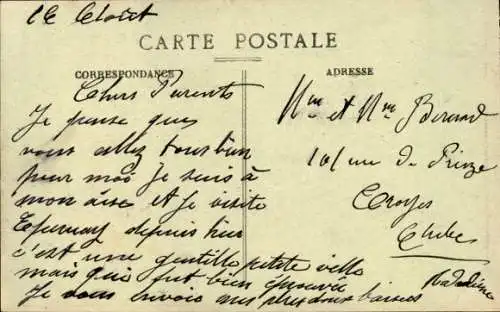 CARTE POSTALE
CORRESPONDANCE
ADRESSE
Chers Parents
Je pense que
vous allez tous bien
pour moi je suis à
mon aise et je visite
Epernay depuis hier
c'est une gentille petite ville
mais qui fut bien éprouvée
Je vous envoie mes plus doux baisers
Mm et Mm
101 rue de
Troyes
Aube